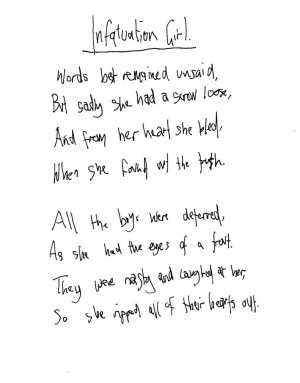 Infatuation Girl.
Words best remained unsaid,
But sadly she had a screw loose,
And from her heart she bled,
When she found out the truth.
All the boys were deterred,
As she had the eyes of a trout.
They were nasty and laughed at her,
So she ripped all of their hearts out.